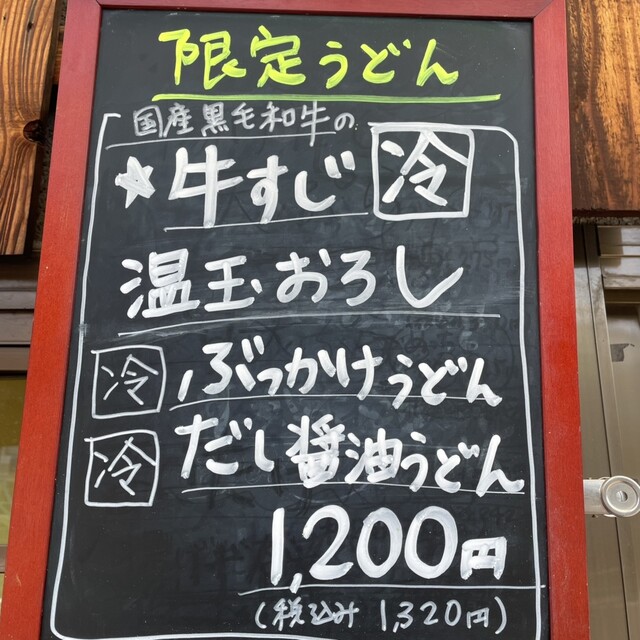 限定うどん
国産黒毛和牛の
☆牛すじ 冷
温玉おろし
冷 ぶっかけうどん
冷 だし醤油うどん
1,200円
(税込み 1,320円)